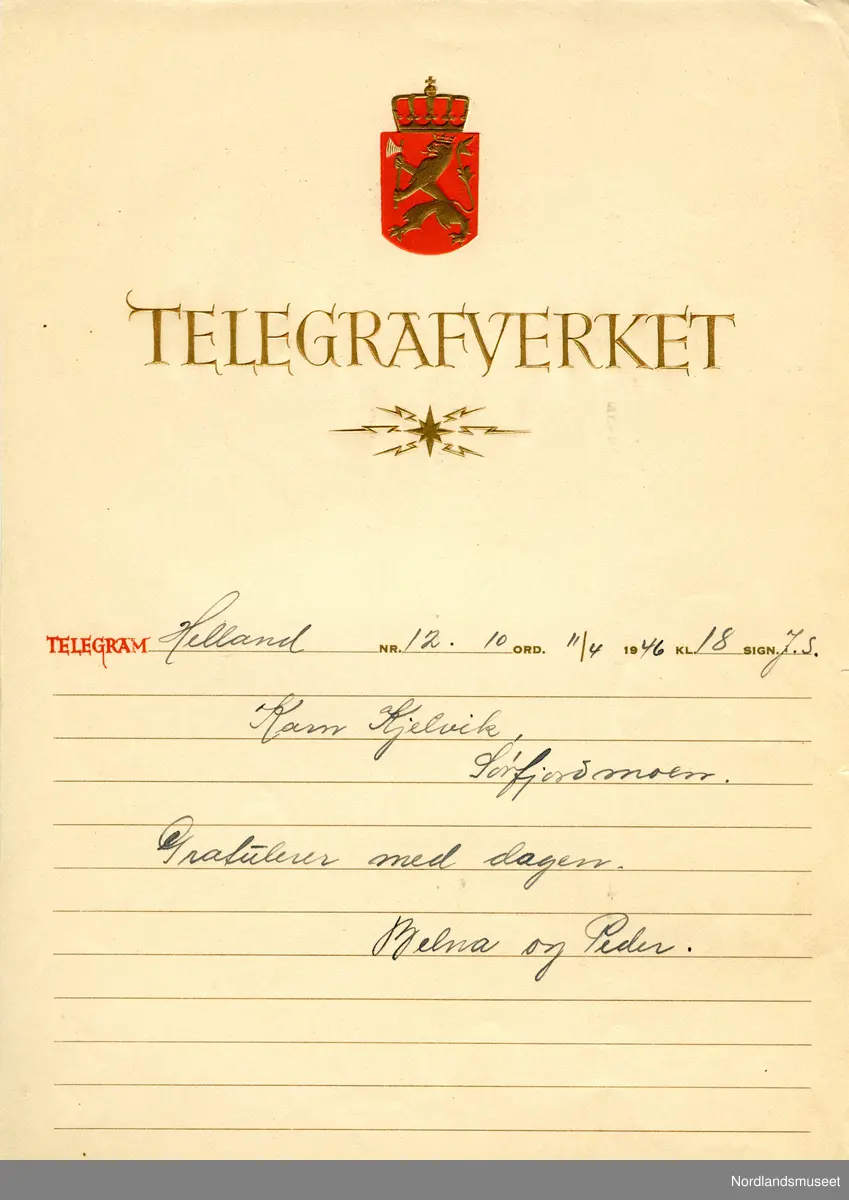 TELEGRAFVERKET
TELEGRAM Helland NR. 12. 10 ORD. 11/4 1946 KL. 18 SIGN. J.S.
Karn Kjelvik,
Sørfjordmoen.
Gratulerer med dagen.
og Peder.
Nordlandsmuseet